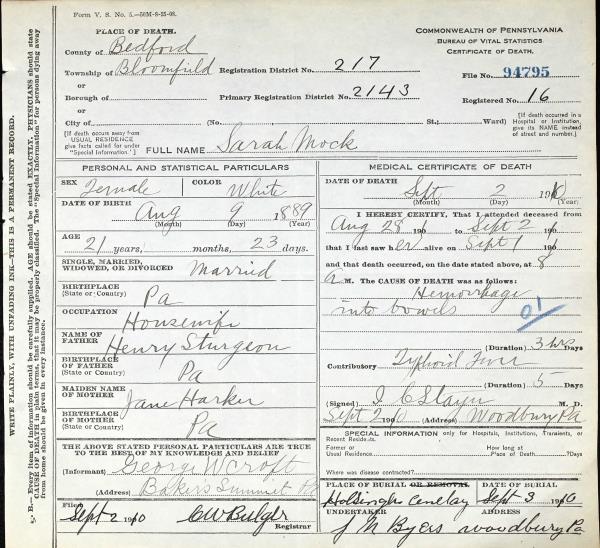 Form V. S. No. 5.—50M-8-25-08.
PLACE OF DEATH.
County of Bedford
Township of Bloomfield
or
Borough of
or
City of (No. St.; Ward)
[If death occurs away from
USUAL RESIDENCE
give facts called for under
"Special Information."]
COMMONWEALTH OF PENNSYLVANIA
BUREAU OF VITAL STATISTICS
CERTIFICATE OF DEATH.
Registration District No. 217
File No. 94795
Primary Registration District No. 2143
Registered No. 16
[If death occurred in a
Hospital or Institution,
give its NAME instead
of street and number.]
FULL NAME Sarah Mock
PERSONAL AND STATISTICAL PARTICULARS
SEX Female COLOR White
DATE OF BIRTH Aug 9 1889
(Month) (Day) (Year)
AGE
21 years, months, 23 days.
SINGLE, MARRIED,
WIDOWED, OR DIVORCED Married
BIRTHPLACE
(State or Country) Pa
OCCUPATION
Housewife
NAME OF
FATHER Henry Sturgeon
BIRTHPLACE
OF FATHER
(State or Country) Pa
MAIDEN NAME
OF MOTHER Jane Harker
BIRTHPLACE
OF MOTHER
(State or Country) Pa
THE ABOVE STATED PERSONAL PARTICULARS ARE TRUE
TO THE BEST OF MY KNOWLEDGE AND BELIEF
(Informant) George W Croft
(Address) Bakers Summit Pa
Filed Sept 2 1910 C W Bulger
Registrar
MEDICAL CERTIFICATE OF DEATH
DATE OF DEATH Sept 2 1910
(Month) (Day) (Year)
I HEREBY CERTIFY, That I attended deceased from
Aug 28 190 to Sept 2 190
that I last saw her alive on Sept 1 190
and that death occurred, on the date stated above, at 8
a M. The CAUSE OF DEATH was as follows:
Hemorrhage
into bowels
01
(Duration) 3 hrs Days
Contributory Typhoid Fever
(Duration) 5 Days
(Signed) I C Stayer M. D.
Sept 2 1910 (Address) Woodbury Pa
SPECIAL INFORMATION only for Hospitals, Institutions, Transients, or
Recent Residents.
Former or
Usual Residence
How long at
Place of Death? Days
Where was disease contracted?
PLACE OF BURIAL OR REMOVAL DATE OF BURIAL
Holsingher Cemetery Sept 3 1910
UNDERTAKER ADDRESS
J M Byers Woodbury Pa
WRITE PLAINLY, WITH UNFADING INK—THIS IS A PERMANENT RECORD.
N. B.—Every item of information should be carefully supplied. AGE should be stated EXACTLY. PHYSICIANS should state
CAUSE OF DEATH in plain terms, that it may be properly classified. The "Special Information" for persons dying away
from home should be given in every instance.